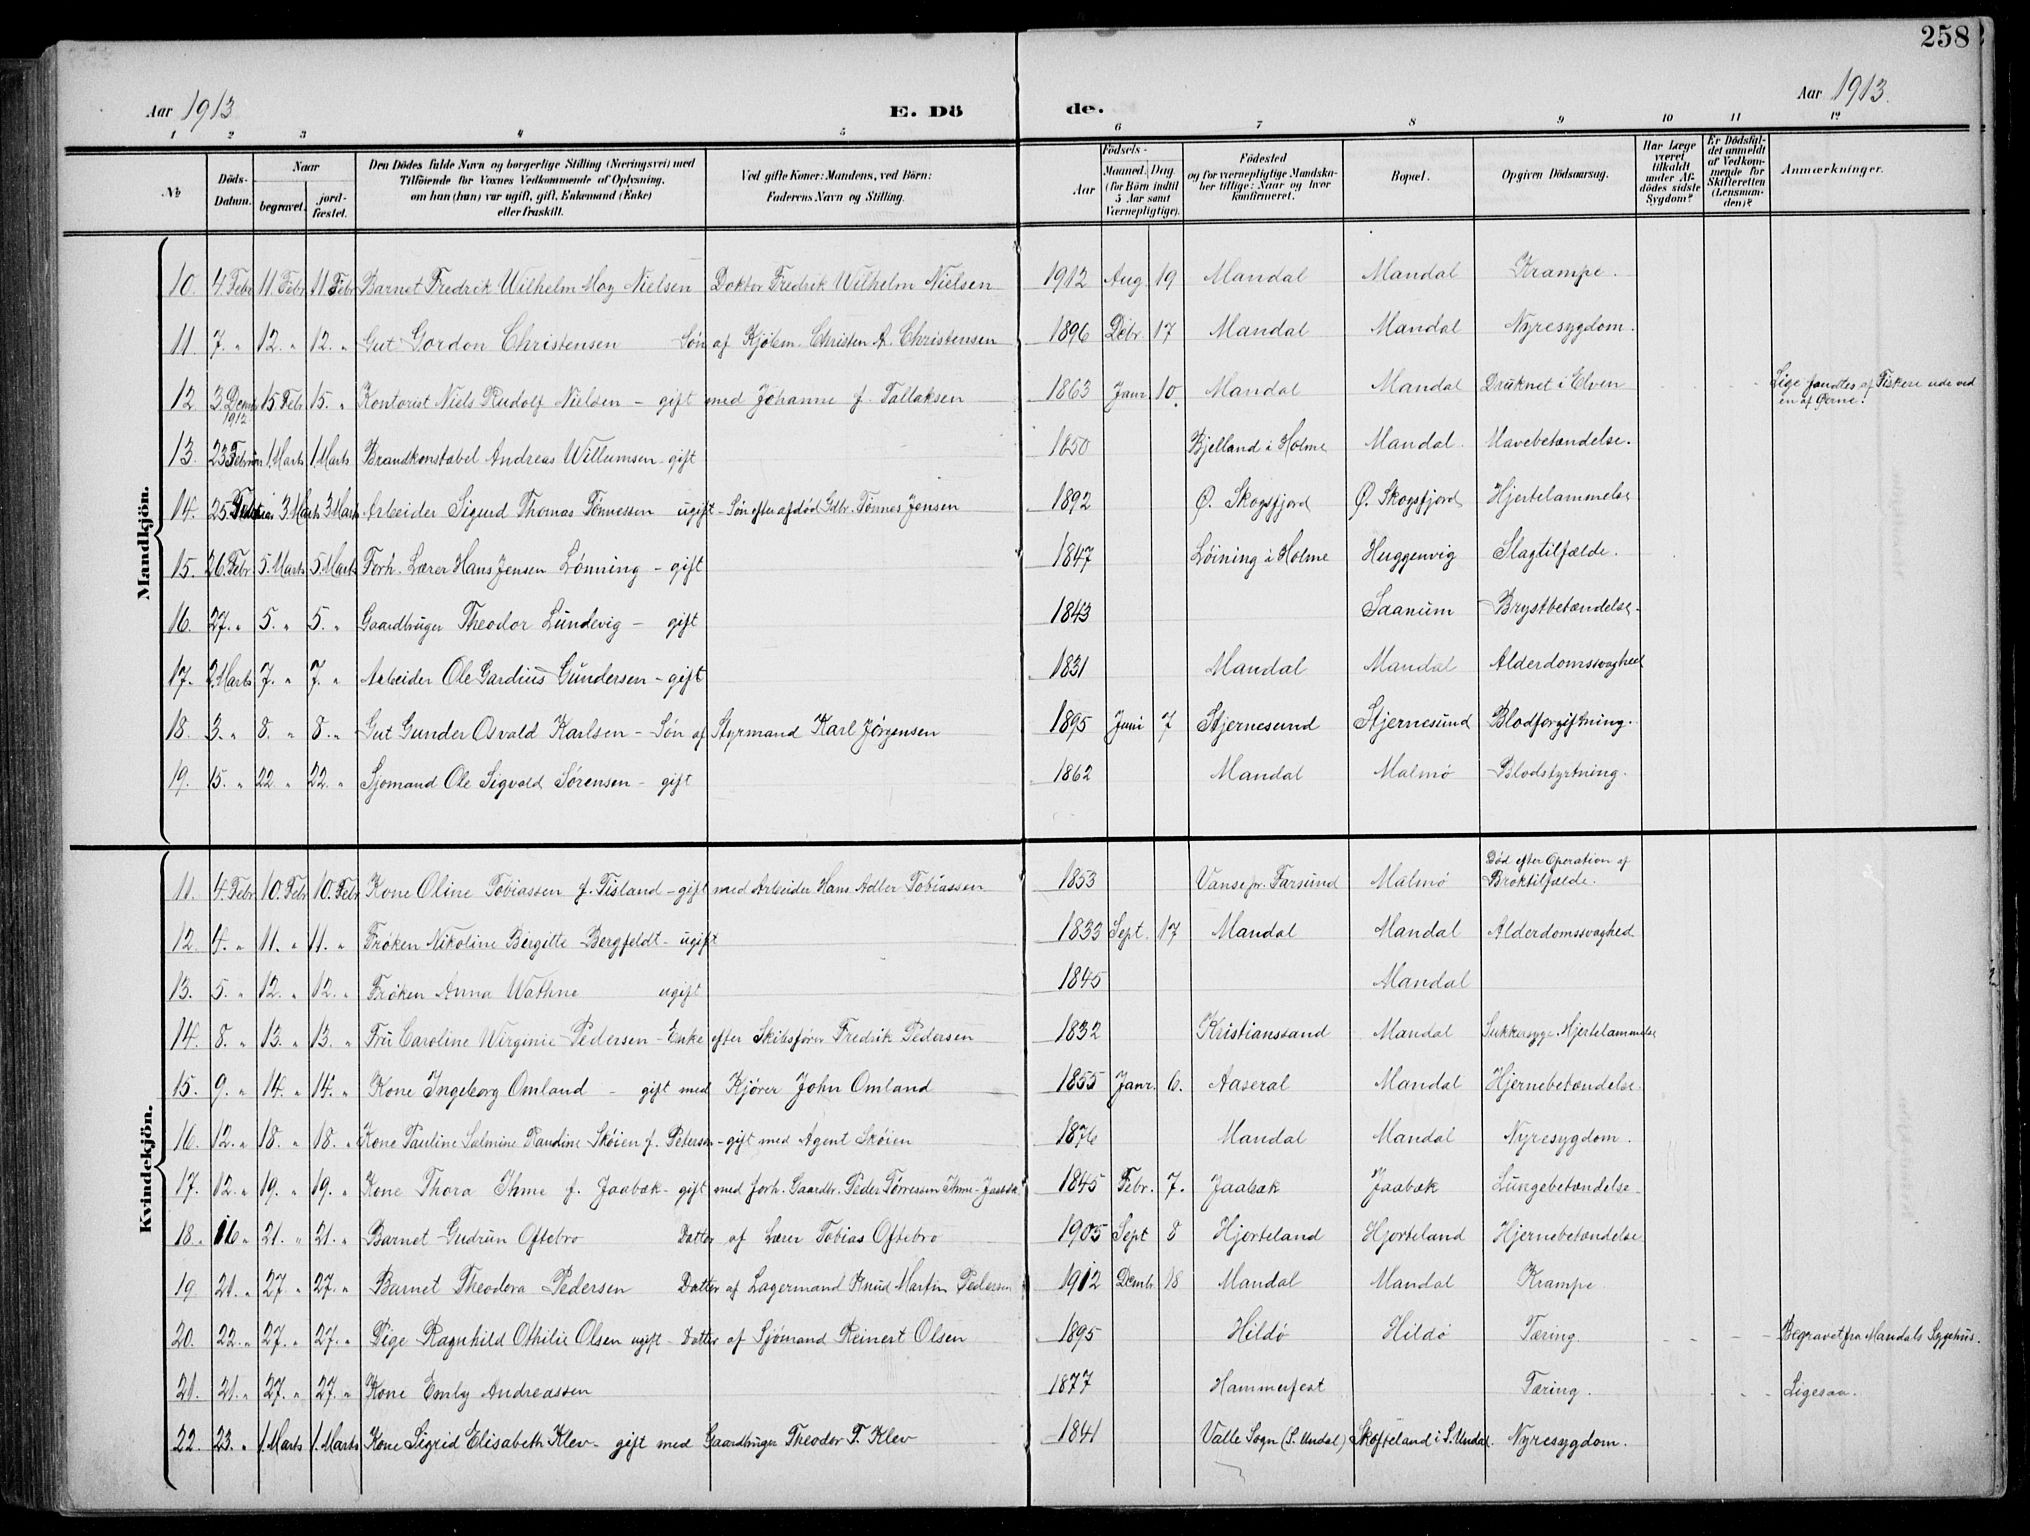 258
Aar 1913
E. Dö de.
Aar 1913.
1 2 3 4 5 6 7 8 9 10 11 12
No
Döds-Datum.
Naar
begravet.
jord-fæstet.
Den Dödes fulde Navn og borgerlige Stilling (Næringsvei) med Tilföiende for Voxnes Vedkommende af Oplysning, om han (hun) var ugift, gift, Enkemand (Enke) eller fraskilt.
Ved gifte Koner: Mandens, ved Börn: Faderens Navn og Stilling.
Födsels-
Aar
Maaned. Dag.
(for Börn indtil 5 Aar samt Værnepligtige).
Födested og for værnepligtige Mandskaber tillige: Naar og hvor konfirmeret.
Bopæl.
Opgiven Dödsaarsag.
Har Læge været tilkaldt under Afdödes sidste Sygdom?
Er Dödsfaldet anmeldt af Vedkommende for Skifteretten (Lensmanden)?
Anmærkninger.
Mandkjön.
10. 4. Febr 11. Febr 11. Febr Barnet Fredrik Wilhelm Moy Nielsen Doktor Fredrik Wilhelm Nielsen 1912 Aug. 19 Mandal Mandal Krampe.
11. 7. " 12. " 12. " Gut Gordon Christensen Søn af Kjøbm. Christen A. Christensen 1896 Debr. 17 Mandal Mandal Nyresygdom.
12 3. Demb 1912 15. Febr 15. " Kontorist Niels Rudolf Nielsen - gift med Johanne f. Tallaksen 1863 Janr. 10. Mandal Mandal Druknet i Elven Lige fandtes af Fiskere ude ved en af Øerne.
13. 23 Februar 1. Marts 1. Marts Brandkonstabel Andreas Willumsen - gift 1850 Bjelland i Holme Mandal Mavebetændelse.
14. 25 3 Marts 3 Marts Arbeider Sigurd Thomas Tønnessen ugift - Søn efter afdød Gdbr. Tønnes Jensen 1892 Ø. Skogsfjord Ø. Skogsfjord Hjertelammelse
15. 26. Febr 5. Marts 5. Marts Forh. Lærer Hans Jensen Lønning - gift 1847 Løining i Holme Huggenvig Slagtilfælde.
16. 27. " 5. " 5. " Gaardbruger Theodor Lundevig - gift 1843 Saanum Brystbetændelse.
17. 2. Marts 7. " 7. " Arbeider Ole Gardius Gundersen - gift 1831 Mandal Mandal Alderdomssvaghed
18. 3. " 8. " 8. " Gut Gunder Osvald Karlsen - Søn af Styrmand Karl Jørgensen 1895 Juni 7 Stjernesund Stjernesund Blodforgiftning.
19. 15. " 22. " 22. " Sjomand Ole Sigvald Sørensen - gift 1862 Mandal Malmø Blodstyrtning.
Kvindekjön.
11. 4. Febr 10. Febr 10. Febr Kone Oline Tobiassen f. Tisland - gift med Arbeider Hans Adler Tobiassen 1853 Vanse pr. Farsund Malmø Død efter Operation af Broktilfælde.
12. 4. " 11. " 11. " Frøken Nikoline Birgitte Bergfeldt - ugift 1833 Sept. 17 Mandal Mandal Alderdomssvaghed
13. 5. " 12. " 12. " Frøken Anna Wathne ugift 1845 Mandal
14. 8. " 13. " 13. " Fru Caroline Wirginie Pedersen - Enke efter Skibsfører Fredrik Pedersen 1832 Kristianssand Mandal Sukkersyge Hjertelammelse
15. 9. " 14. " 14. " Kone Ingeborg Omland - gift med Kjører John Omland 1855 Janr. 6. Aaseral Mandal Hjernebetændelse.
16. 12. " 18. " 18. " Kone Pauline Salmine Paudine Skøien f. Petersen - gift med Agent Skøien 1876 Mandal Mandal Nyresygdom.
17. 12. " 19. " 19. " Kone Thora Ihme f. Jaabæk - gift med forh. Gaardbr. Peder Tørresen Ihme - Jaabæk 1845 Febr. 7. Jaabæk Jaabæk Lungebetændelse.
18. 16. " 21. " 21. " Barnet Gudrun Oftebro Datter af Lærer Tobias Oftebro 1905 Sept 8 Hjorteland Hjorteland Hjernebetændelse
19. 21. " 27. " 27. " Barnet Theodora Pedersen Datter af Lagermand Knud Martin Pedersen 1912 Demb. 18 Mandal Mandal Krampe
20. 22. " 27. " 27. " Pige Ragnhild Othilie Olsen ugift - Datter af Sjømand Reinert Olsen 1895 Hildø Hildø Tæring. Begravet fra Mandals Sygehus.
21. 21. " 27. " 27. " Kone Emly Andreassen 1877 Hammerfest Tæring. Ligesaa.
22. 23. " 1. Marts 1. Marts Kone Sigrid Elisabeth Klev - gift med Gaardbruger Theodor T. Klev 1841 Valle Sogn (S. Undal) Skofteland i S. Undal. Nyresygdom.